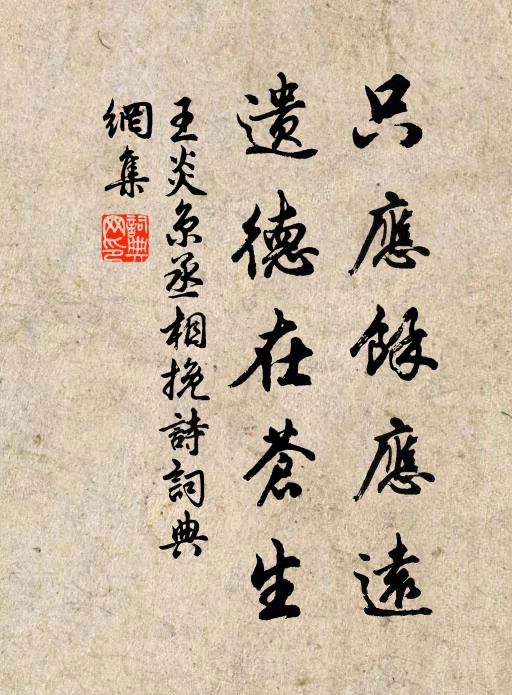 只應餘應遠
遺德在蒼生
王炎京丞相挽詩詞典
網集
詞典
网印